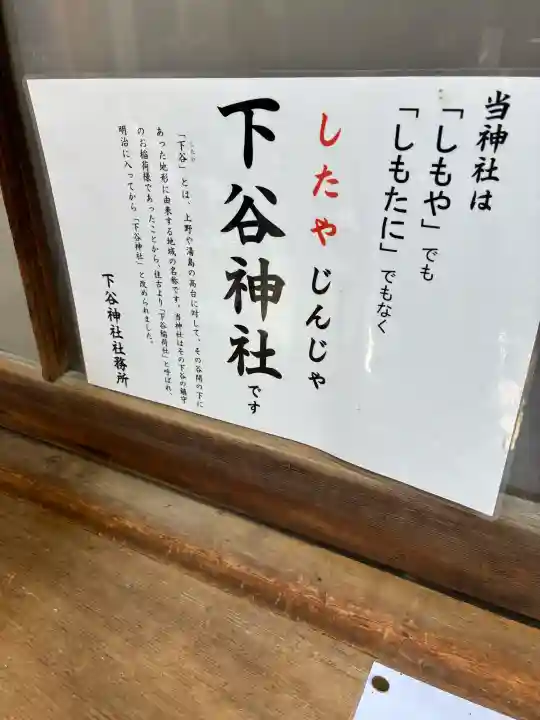 当神社は
「しもや」でも
「しもたに」でもなく
したやじんじゃ
下谷神社です
「下谷」とは、上野や湯島の高台に対して、その谷間の下に
あった地形に由来する地域の名称です。当神社はその下谷の鎮守
のお稲荷様であったことから、往古より「下谷稲荷社」と呼ばれ、
明治に入ってから「下谷神社」と改められました。
下谷神社社務所